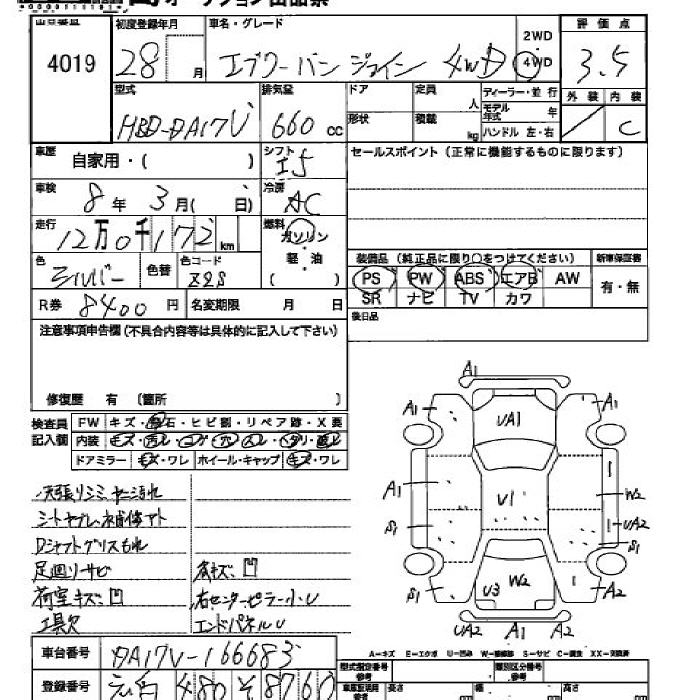 オークション出品票
出品番号 初度登録年月 車名・グレード 2WD 評価点
4019 28 月 エブリーバン ジョイン 4WD 4WD 3.5
型式 排気量 ドア 定員 人 ディーラー・並行 外装 内装
HBD-DA17V 660 cc 形状 積載 kg モデル年式 年 C
ハンドル 左・右
車歴 自家用・( ) シフト I5 セールスポイント(正常に機能するものに限ります)
車検 8年 3月( 日) 冷房 AC
走行 12万0千172 km 燃料 ガソリン
軽・油
( )
装備品(純正品に限り○をつけてください) 新車保証書
色 シルバー 色替 色コード Z2S PS PW ABS エアB AW 有・無
SR ナビ TV カワ
R券 8400 円 名変期限 月 日 後日品
注意事項申告欄(不具合内容等は具体的に記入して下さい)
修復歴 有 [箇所 ]
検査員 FW キズ・飛石・ヒビ割・リペア跡・X要
記入欄 内装
ドアミラー キズ・ワレ ホイール・キャップ キズ・ワレ
天張りシミ、ヤニ汚れ
シートヤブレ、補修アト
Dシャフトグリスもれ
足廻りサビ
荷室キズ、凹
工具欠
右センターピラー小U
エンドパネルU
A1
A1 A1
UA1
A1 U1 W2
S1 UA2
S1
U3 W2 A2
S1
UA2 A1 A2
A-キズ E-エクボ U-凹み W-補修跡 S-サビ C-腐蝕 XX-交換済
車台番号 DA17V-166683
型式指定番号 類別区分番号
参考 参考
登録番号 480 そ 8760
長さ 幅 高さ